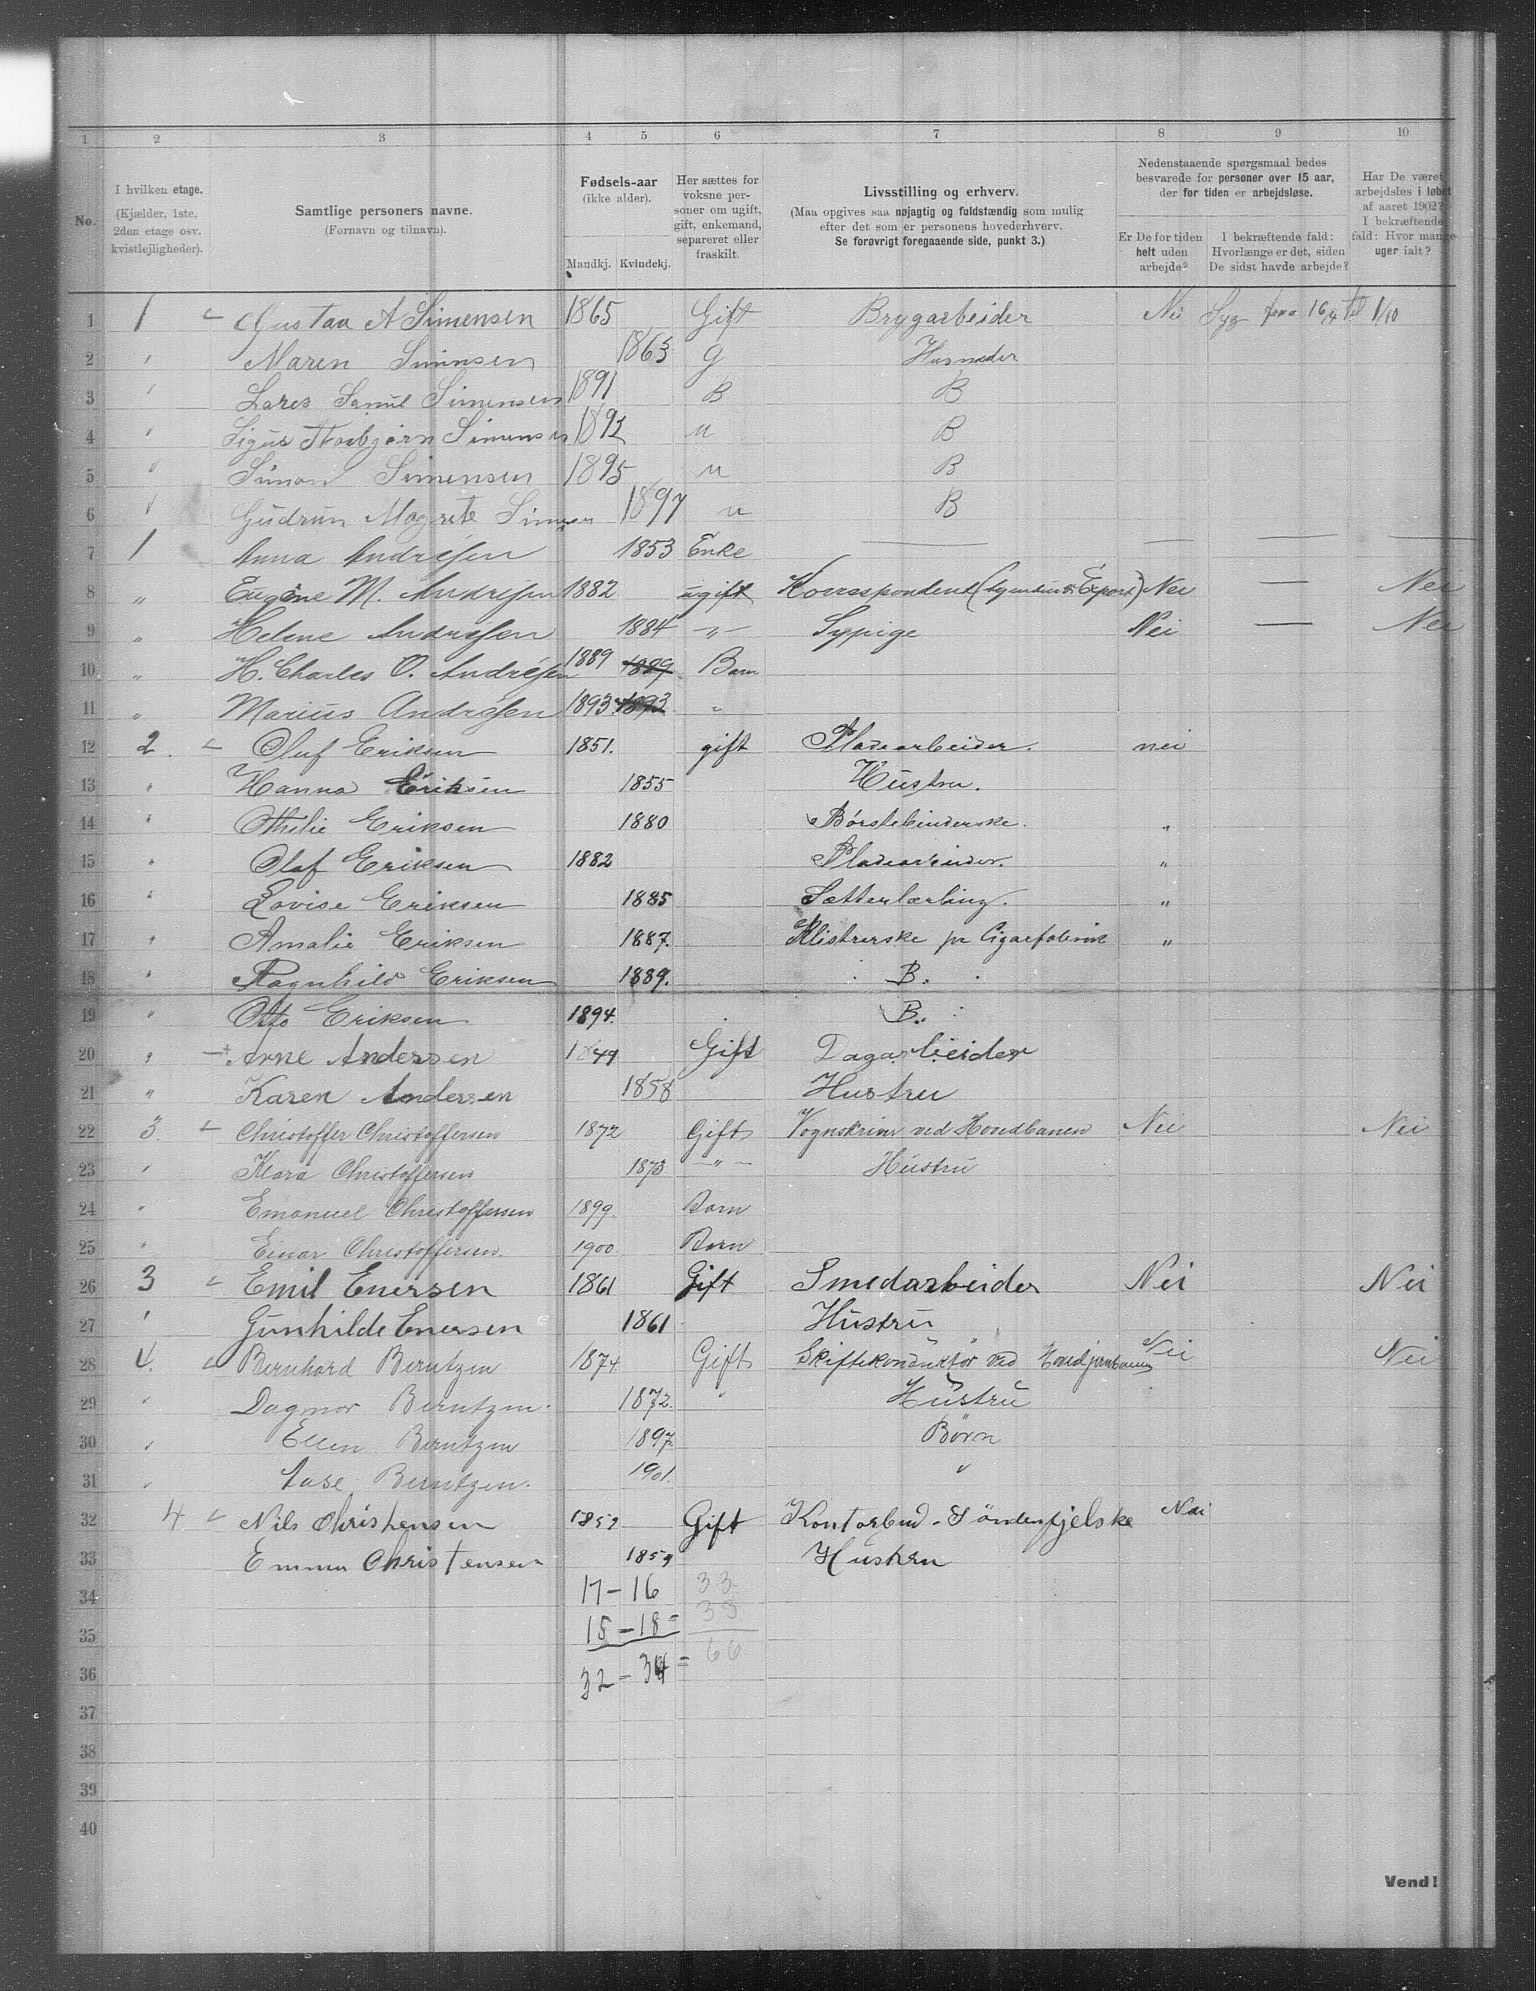 1 2 3 4 5 6 7 8 9 10
No.
I hvilken etage.
(Kjælder, 1ste.
2den etage osv.
kvistlejligheder).
Samtlige personers navne.
(Fornavn og tilnavn).
Fødsels-aar
(ikke alder).
Mandkj. Kvindekj.
Her sættes for
voksne per-
soner om ugift,
gift, enkemand,
separeret eller
fraskilt.
Livsstilling og erhverv.
(Maa opgives saa nøjagtig og fuldstændig som mulig
efter det som er personens hovederhverv.
Se forøvrigt foregaaende side, punkt 3.)
Nedenstaaende spørgsmaal bedes
besvarede for personer over 15 aar,
der for tiden er arbejdsløse.
Er De for tiden
helt uden
arbejde?
I bekræftende fald:
Hvorlænge er det, siden
De sidst havde arbejde?
Har De været
arbejdsløs i løbet
af aaret 1902?
I bekræftende
fald: Hvor mange
uger ialt?
1 1 Gustav A Simensen 1865 Gift Brygarbeider Nei Syg fra 16/4 til 1/10
2 " Maren Simensen 1863 G Husmoder
3 " Lars Simensen 1891 B B
4 " Torbjørn Simensen 1893 " B
5 " Simon Simensen 1895 " B
6 " Gudrun Magrete Simensen 1897 " B
7 1 Anna Andrésen 1853 Enke — — — —
8 " Eugéne M. Andrésen 1882 ugift Korrespondent Export) Nei — Nei
9 " Helene Andrésen 1884 -"- Sypige Nei — Nei
10 " H. Charles O. Andrésen 1889 1889 Barn
11 " Marius Andrésen 1893 1893 "
12 2 Oluf Eriksen 1851. gift Pladearbeider. nei
13 " Hanna Eriksen 1855 Hustru.
14 " Othilie Eriksen 1880 Børstebinderske. "
15 " Olaf Eriksen 1882 Pladearbeider. "
16 " Lovise Eriksen 1885 Sætterlærling. "
17 " Amalie Eriksen 1887. Klistrerske pr Cigarfabrik "
18 " Ragnhild Eriksen 1889. B.
19 " Otto Eriksen 1894. B.
20 " Arne Andersen 1849 Gift Dagarbeider
21 " Karen Andersen 1858 Hustru
22 3. Christoffer Christoffersen 1872 Gift Vognskriver ved Hovedbanen Nei Nei
23 " Klara Christoffersen 1873 -"- Hustru
24 " Emanuel Christoffersen 1899. Barn
25 " Einar Christoffersen. 1900. Barn
26 3 Emil Enersen 1861 Gift Smedarbeider Nei Nei
27 " Gunhilde Enersen 1861 Hustru
28 4. Bernhard Berntzen 1874 Gift Skiftekonduktør ved Hovedjernbanen Nei Nei
29 " Dagmar Berntzen. 1872. " Hustru
30 " Ellen Berntzen 1897. Børn
31 " Aase Berntzen. 1901. "
32 4 Nils Christensen 1859 Gift Kontorbud. Søndenfjelske Nei
33 Emma Christensen 1859 Hustru
34 17 – 16 33
35 15 – 18 = 33
36 32 – 34 = 66
37
38
39
40
Vend!